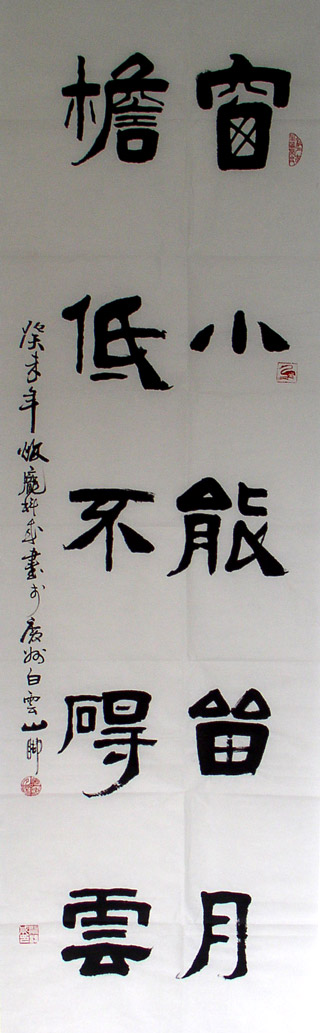 窗小能留月
檐低不碍雲
癸未年秋龐 書於廣州白雲山脚